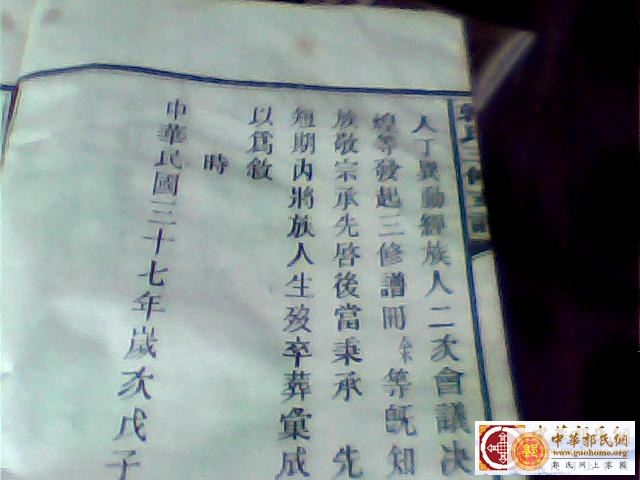 郭氏三修支譜
人丁異動經族人二次會議決
煌等發起三修譜冊余等旣知
族敬宗承先啓後當秉承 先
短期內將族人生歿卒葬彙成
以爲敘
時
中華民國三十七年歲次戊子
中華郭氏網
www.guohome.org
郭氏網上家園